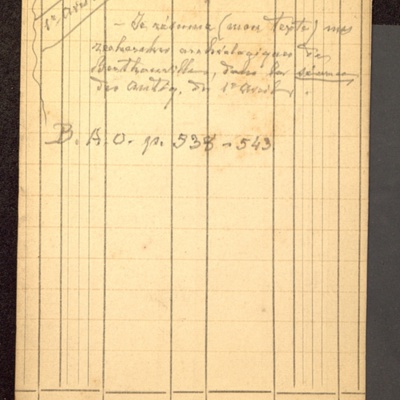 1er Avril
- Je résume (mon texte) mes
recherches archéologiques de
Berthouville, dans les séances
des Antiq. du 1er Avril.
B. A. O. p. 538-543.